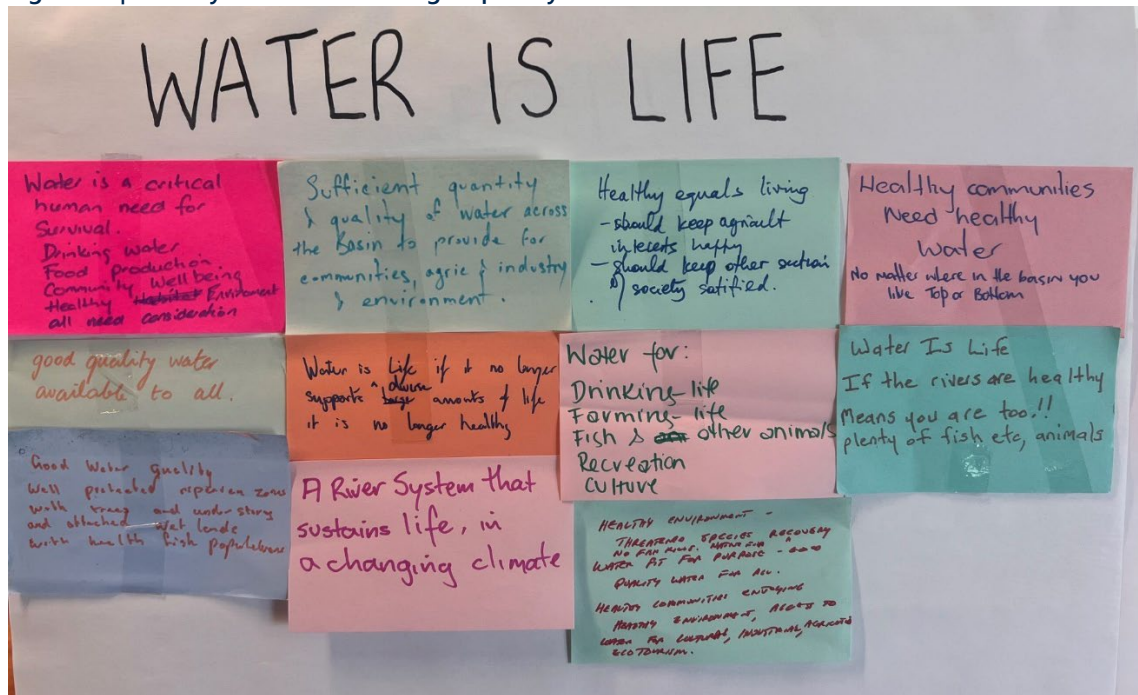 WATER IS LIFE
Water is a critical
human need for
Survival.
Drinking water
Food production
Community Wellbeing
Healthy Environment
all need consideration
Sufficient quantity
& quality of water across
the Basin to provide for
communities, agric & industry
& environment.
Healthy equals living
- should keep agricult
interests happy
- should keep other section
of society satified.
Healthy communities
Need healthy
Water
No matter where in the basin you
live Top or Bottom
good quality water
available to all.
Water is Life if it no longer
supports diverse amounts of life
it is no longer healthy
Water for:
Drinking - life
Farming - life
Fish & other animals
Recreation
Culture
Water Is Life
If the rivers are healthy
Means you are too!!
plenty of fish etc, animals
Good Water quality
Well protected zones
with trees and understory
and attached wet lands
with health fish populations
A River System that
sustains life, in
a changing climate
HEALTHY ENVIRONMENT -
THREATENED SPECIES RECOVERY
NO FISH KILLS.
WATER FIT FOR PURPOSE -
QUALITY WATER FOR ALL.
HEALTHY COMMUNITIES ENJOYING
HEALTHY ENVIRONMENT, ACCESS TO
WATER FOR CULTURAL, INDUSTRIAL,
ECOTOURISM.